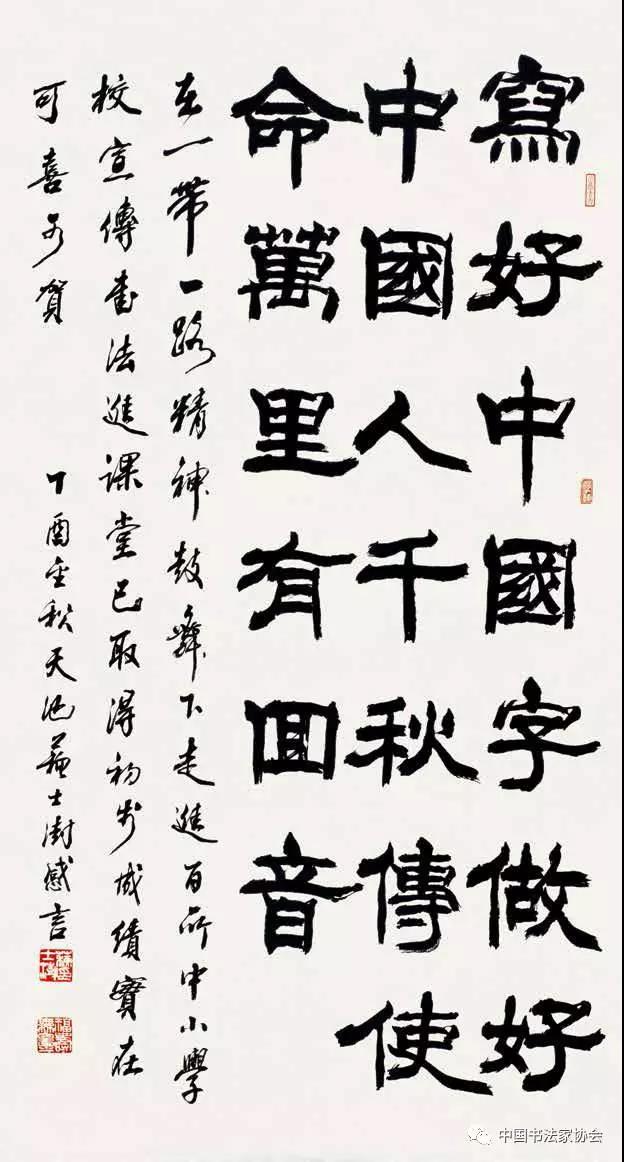 寫好中國字做好
中國人千秋傳使
命萬里有回音
在一帶一路精神鼓舞下走進百所中小學
校宣傳書法進課堂已取得初步成績實在
可喜可賀
丁酉金秋天池蘇士澍感言
中国书法家协会